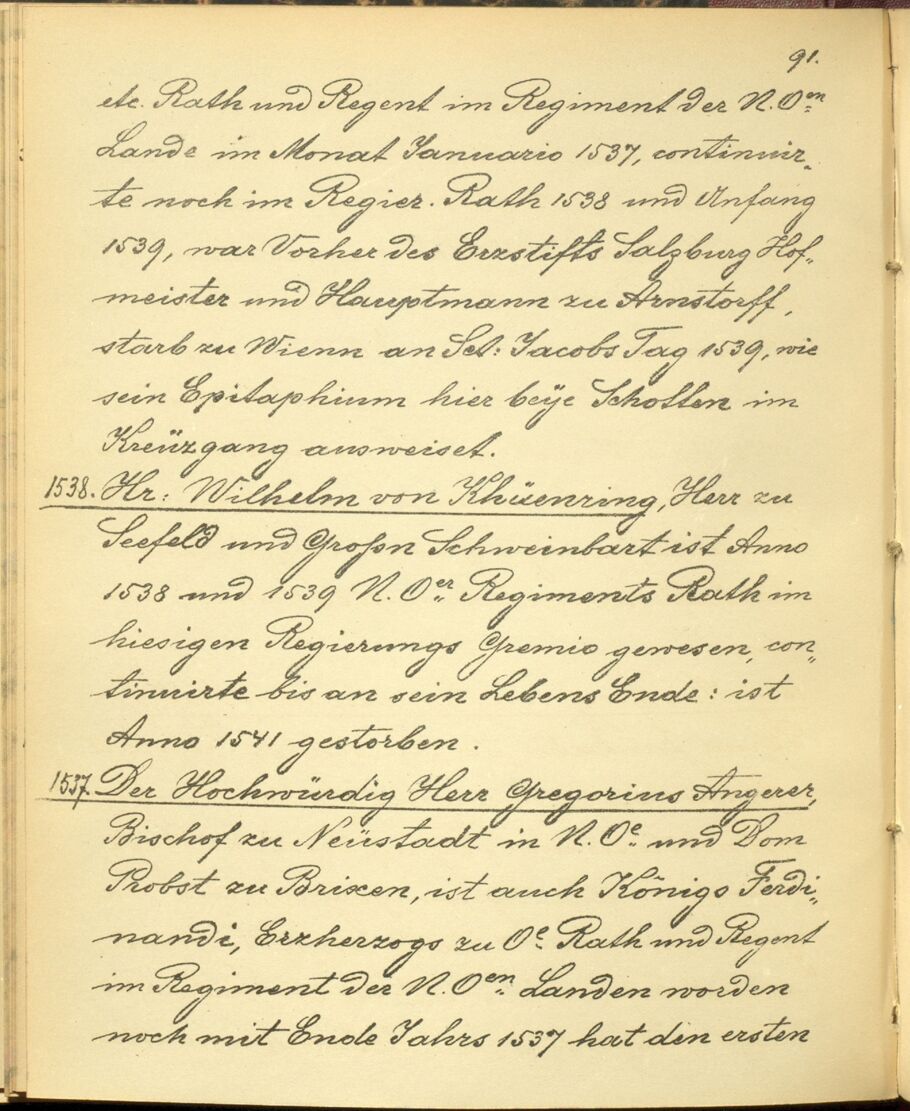 91.
etc. Rath und Regent im Regiment der N. Oen
Lande im Monat Januario 1537, continuir„
te noch im Regier. Rath 1538 und Anfang
1539, war Vorher des Erzstifts Salzburg Hof„
meister und Hauptmann zu Arnstorff,
starb zu Wienn an Sct: Jacobs Tag 1539, wie
sein Epitaphium hier beÿe Schotten im
Kreüzgang ausweiset.
1538. Hr: Wilhelm von Khüenring, Herr zu
Seefeld und Großn Schweinbart ist Anno
1538 und 1539 N. Oer Regiments Rath im
hiesigen Regierungs Gremio gewesen, con„
tinuirte bis an sein Lebens Ende: ist
Anno 1541 gestorben.
1537. Der Hochwürdig Herr Gregorius Angerer,
Bischof zu Neüstadt in N. Oe und Dom
Probst zu Brixen, ist auch Königs Ferdi„
nandi, Erzherzogs zu Oe Rath und Regent
im Regiment der N. Oen Landen worden
noch mit Ende Jahrs 1537 hat den ersten